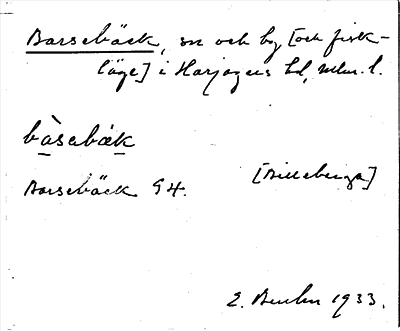 Barsebäck, sn och by [och fisk-
läge] i Harjagers hd, Mlm. l.
bàsebäk
Barsebäck 94. [Billeberga]
2. Benhn 1933.